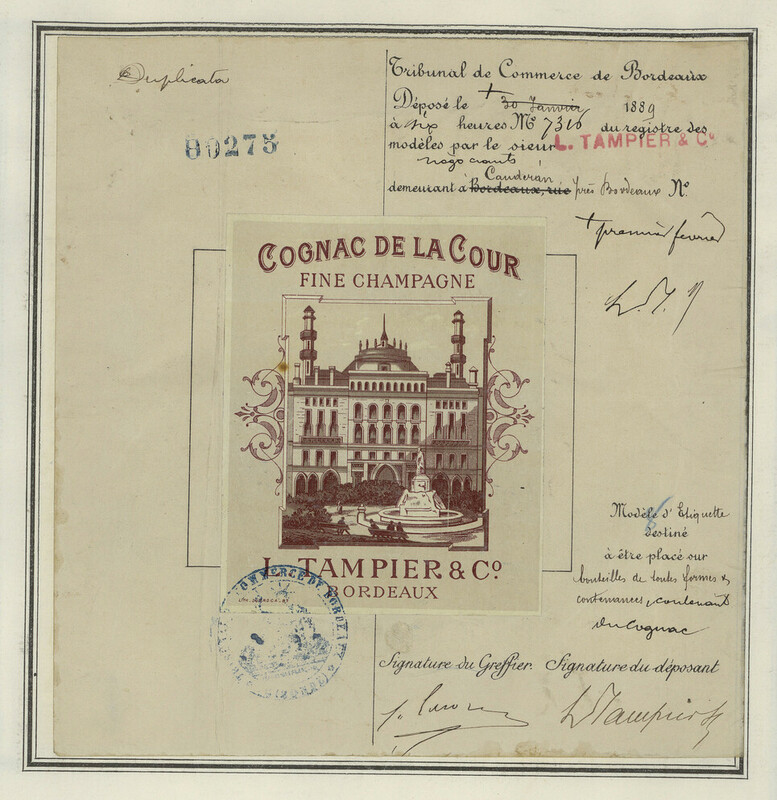 Duplicata
90275
Tribunal de Commerce de Bordeaux
Déposé le + 30 Janvier 1889
à six heures No 7316 du registre des
modèles par le sieur L. TAMPIER & Co
Cauderan
demeurant à Bordeaux, rue près Bordeaux No.
+ premier février
L. T.
COGNAC DE LA COUR
FINE CHAMPAGNE
L. TAMPIER & Co.
BORDEAUX
Modèle d'Etiquette
destiné
à être placé sur
bouteilles de toutes formes &
contenances, contenant
du Cognac
COMMERCE DE BORDEAUX
Signature du Greffier. Signature du déposant
L Tampier